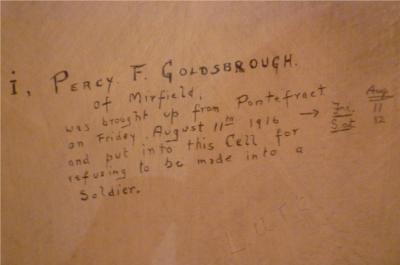 i, PERCY. F. GOLDSBROUGH.
of Mirfield,
was brought up from Pontefract
on Friday August 11th 1916 →
and put into this Cell for
refusing to be made into a
Soldier.
Aug
Fri. 11
Sat 12